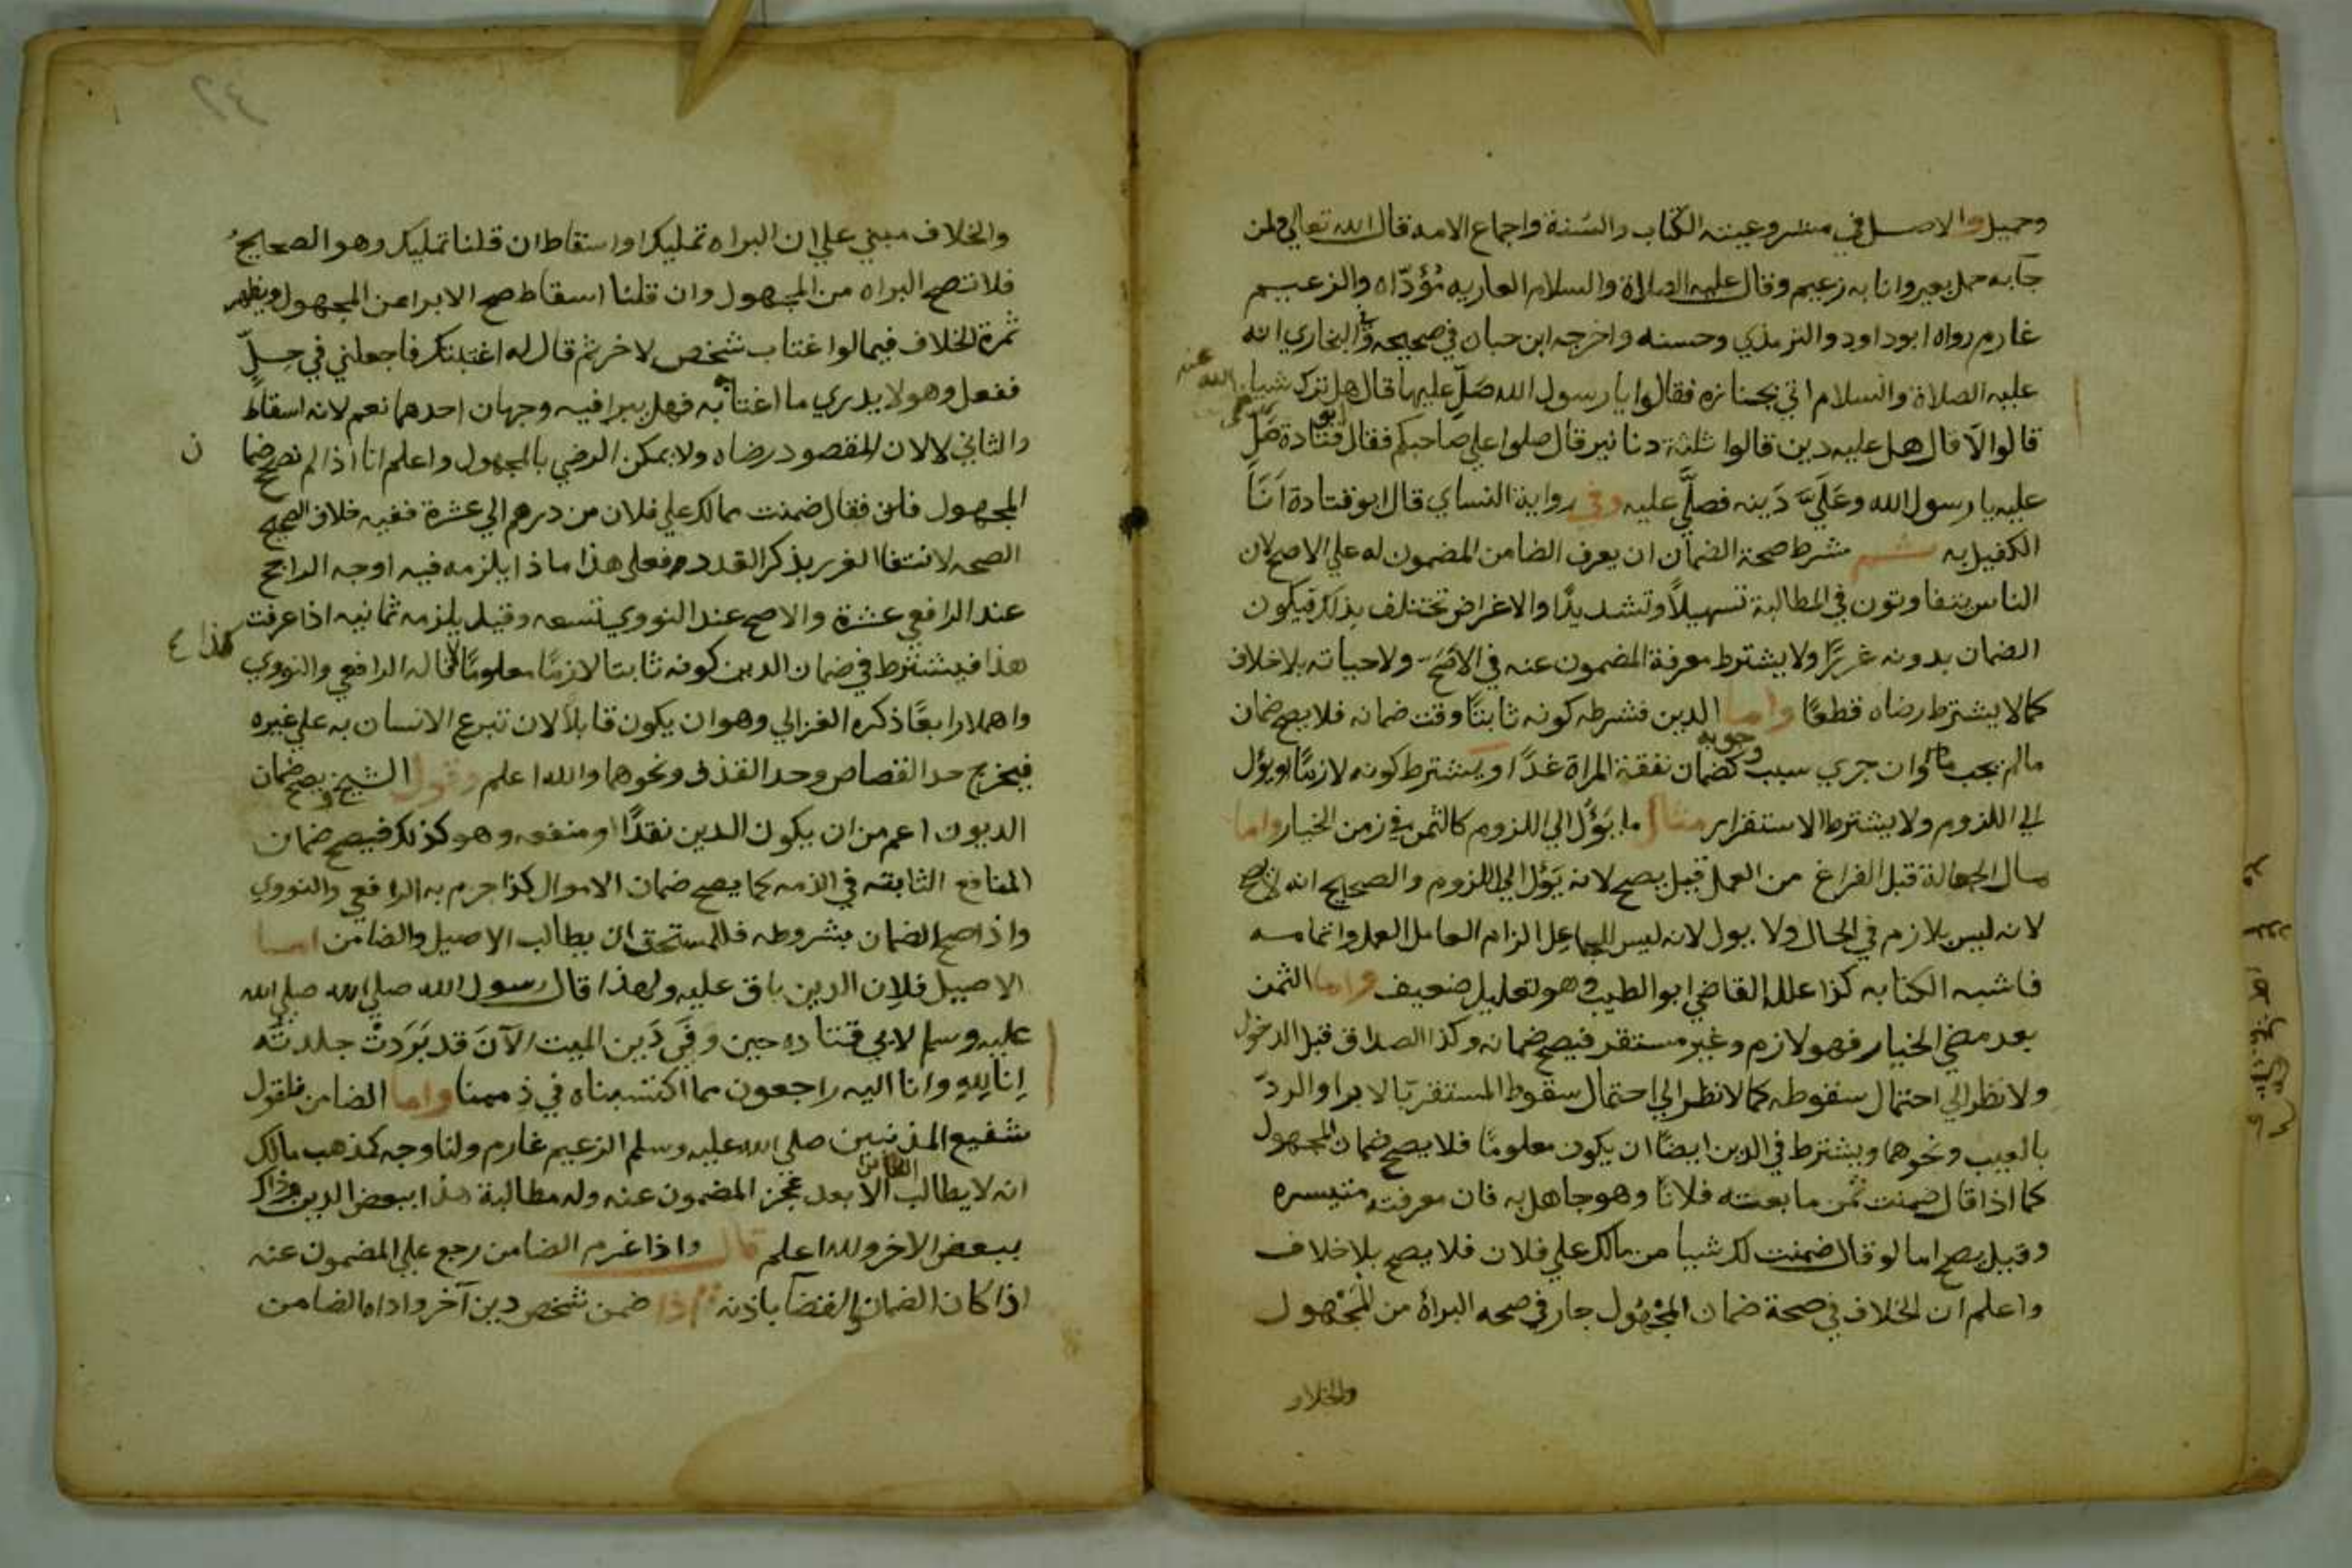 وحميل والاصل في مشروعيته الكتاب والسنة واجماع الامه قال الله تعالي ولمن
جآ به حمل بعير وانا به زعيم وقال عليه الصلاة والسلام العاريه مُؤدّاه والزعيم
غارم رواه ابو داود والترمذي وحسنه واخرجه ابن حبان في صحيحه وفي البخاري انه
عليه الصلاة والسلام اتي بجنازه فقالوا يا رسول الله صَلِّ عليها قال هل ترك شيا
قالوا لا قال هل عليه دين قالوا ثلثة دنانير قال صلوا علي صاحبكم فقال ابو قتادة صَلِّ
عليه يا رسول الله وعَلَيَّ دَينه فصلَّي عليه وفي رواية النساي قال ابو قتادة اَنَا
الكفيل به ثم شرط صحة الضمان ان يعرف الضامن المضمون له علي الاصح لان
الناس يتفاوتون في المطالبة تسهيلاً وتشديدًا والاغراض تختلف بذلك فيكون
الضمان بدونه غررًا ولا يشترط معرفة المضمون عنه في الاصَح ولا حياته بلا خلاف
كما لا يشترط رضاه قطعًا واما الدين فشرطه كونه ثابتًا وقت ضمانه فلا يصح ضمان
ما لم يجب وان جري سبب وجوبه كضمان نفقة المراة غدًا ويشترط كونه لازمًا او يؤل
الي اللزوم ولا يشترط الاستقرار مثال ما يؤل الي اللزوم كالثمن في زمن الخيار واما
مال الجعالة قبل الفراغ من العمل قيل يصح لانه يَؤل الي اللزوم والصحيح انه لا يصح
لانه ليس بلازم في الحال ولا يول لانه ليس للجاعل الزام العامل العمل واتمامه
فاشبه الكتابه كذا علله القاضي ابو الطيب وهو تعليل ضعيف واما الثمن
بعد مضي الخيار فهو لازم وغير مستقر فيصح ضمانه وكذا الصداق قبل الدخول
ولا نظر الي احتمال سقوطه كما لا نظر الي احتمال سقوط المستقر بالابرا والردّ
بالعيب ونحوهما ويشترط في الدين ايضًا ان يكون معلومًا فلا يصح ضمان المجهول
كما اذا قال ضمنت ثمن ما بعته فلانًا وهو جاهل به فان معرفته متيسره
وقيل يصح اما لو قال ضمنت لك شيا من مالك علي فلان فلا يصح بلا خلاف
واعلم ان الخلاف في صحة ضمان المجْهُول جار في صحه البراة من المَجْهول
والخلاف
والخلاف مبني علي ان البراه تمليك او اسقاط ان قلنا تمليك وهو الصحيح
فلا تصح البراه من المجهول وان قلنا اسقاط صح الابرا من المجهول ويظهر
ثمرة الخلاف فيما لو اغتاب شخص لاخر ثم قال له اغتبتك فاجعلني في حِلّ
ففعل وهو لا يدري ما اغتابه به فهل يبرا فيه وجهان احدهما نعم لانه اسقاط
والثاني لا لان المقصود رضاه ولا يمكن الرضي بالمجهول واعلم انا اذا لم نصحح ضما
ن
المجهول فلو فقال ضمنت مالك علي فلان من درهم الي عشرة ففيه خلاف الصحيح
الصحه لانتفا الغرر بذكر القدر فعلي هذا ماذا يلزمه فيه اوجه الراجح
عند الرافعي عشرة والاصح عند النووي تسعه وقيل يلزمه ثمانيه اذا عرفت
هذا فيشترط في ضمان الدين كونه ثابتا لازمًا معلومًا قاله الرافعي والنووي
كذا
واهملا رابعًا ذكره الغزالي وهو ان يكون قابلاً لان تبرع الانسان به علي غيره
فيخرج حد القصاص وحد القذف ونحوهما والله اعلم وقول الشيخ ويصح ضمان
الديون اعم من ان يكون الدين نقدًا او منفعه وهو كذلك فيصح ضمان
المنافع الثابته في الذمه كما يصح ضمان الاموال كذا جزم به الرافعي والنووي
واذا صح الضمان بشروطه فللمستحق ان يطالب الاصيل والضامن اما
الاصيل فلان الدين باق عليه ولهذا قال رسول الله صلي الله صلي الله
عليه وسلم لابي قتاده حين وَفَي دَين الميت الآنَ قد بَرَدتْ جلدتُه
انا لله وانا اليه راجعون مما اكتسبناه في ذممنا واما الضامن فلقول
شفيع المذنبين صلي الله عليه وسلم الزعيم غارم ولنا وجه كمذهب مالك
انه لا يطالب الضامن الا بعد عجز المضمون عنه وله مطالبة هذا ببعض الدين وذاك
ببعض الاخر والله اعلم قال واذا غرم الضامن رجع علي المضمون عنه
اذا كان الضمان والقضآ باذنه اذا ضمن شخص دين آخر واداه الضامن